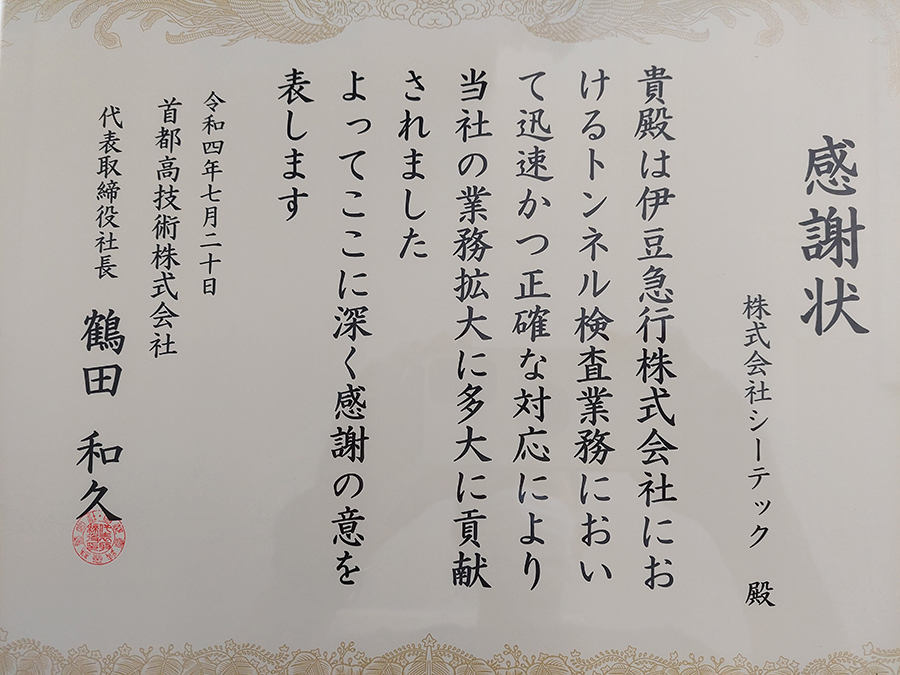 感謝状
株式会社シーテック 殿
貴殿は伊豆急行株式会社にお
けるトンネル検査業務におい
て迅速かつ正確な対応により
当社の業務拡大に多大に貢献
されました
よってここに深く感謝の意を
表します
令和四年七月二十日
首都高技術株式会社
代表取締役社長 鶴田 和久